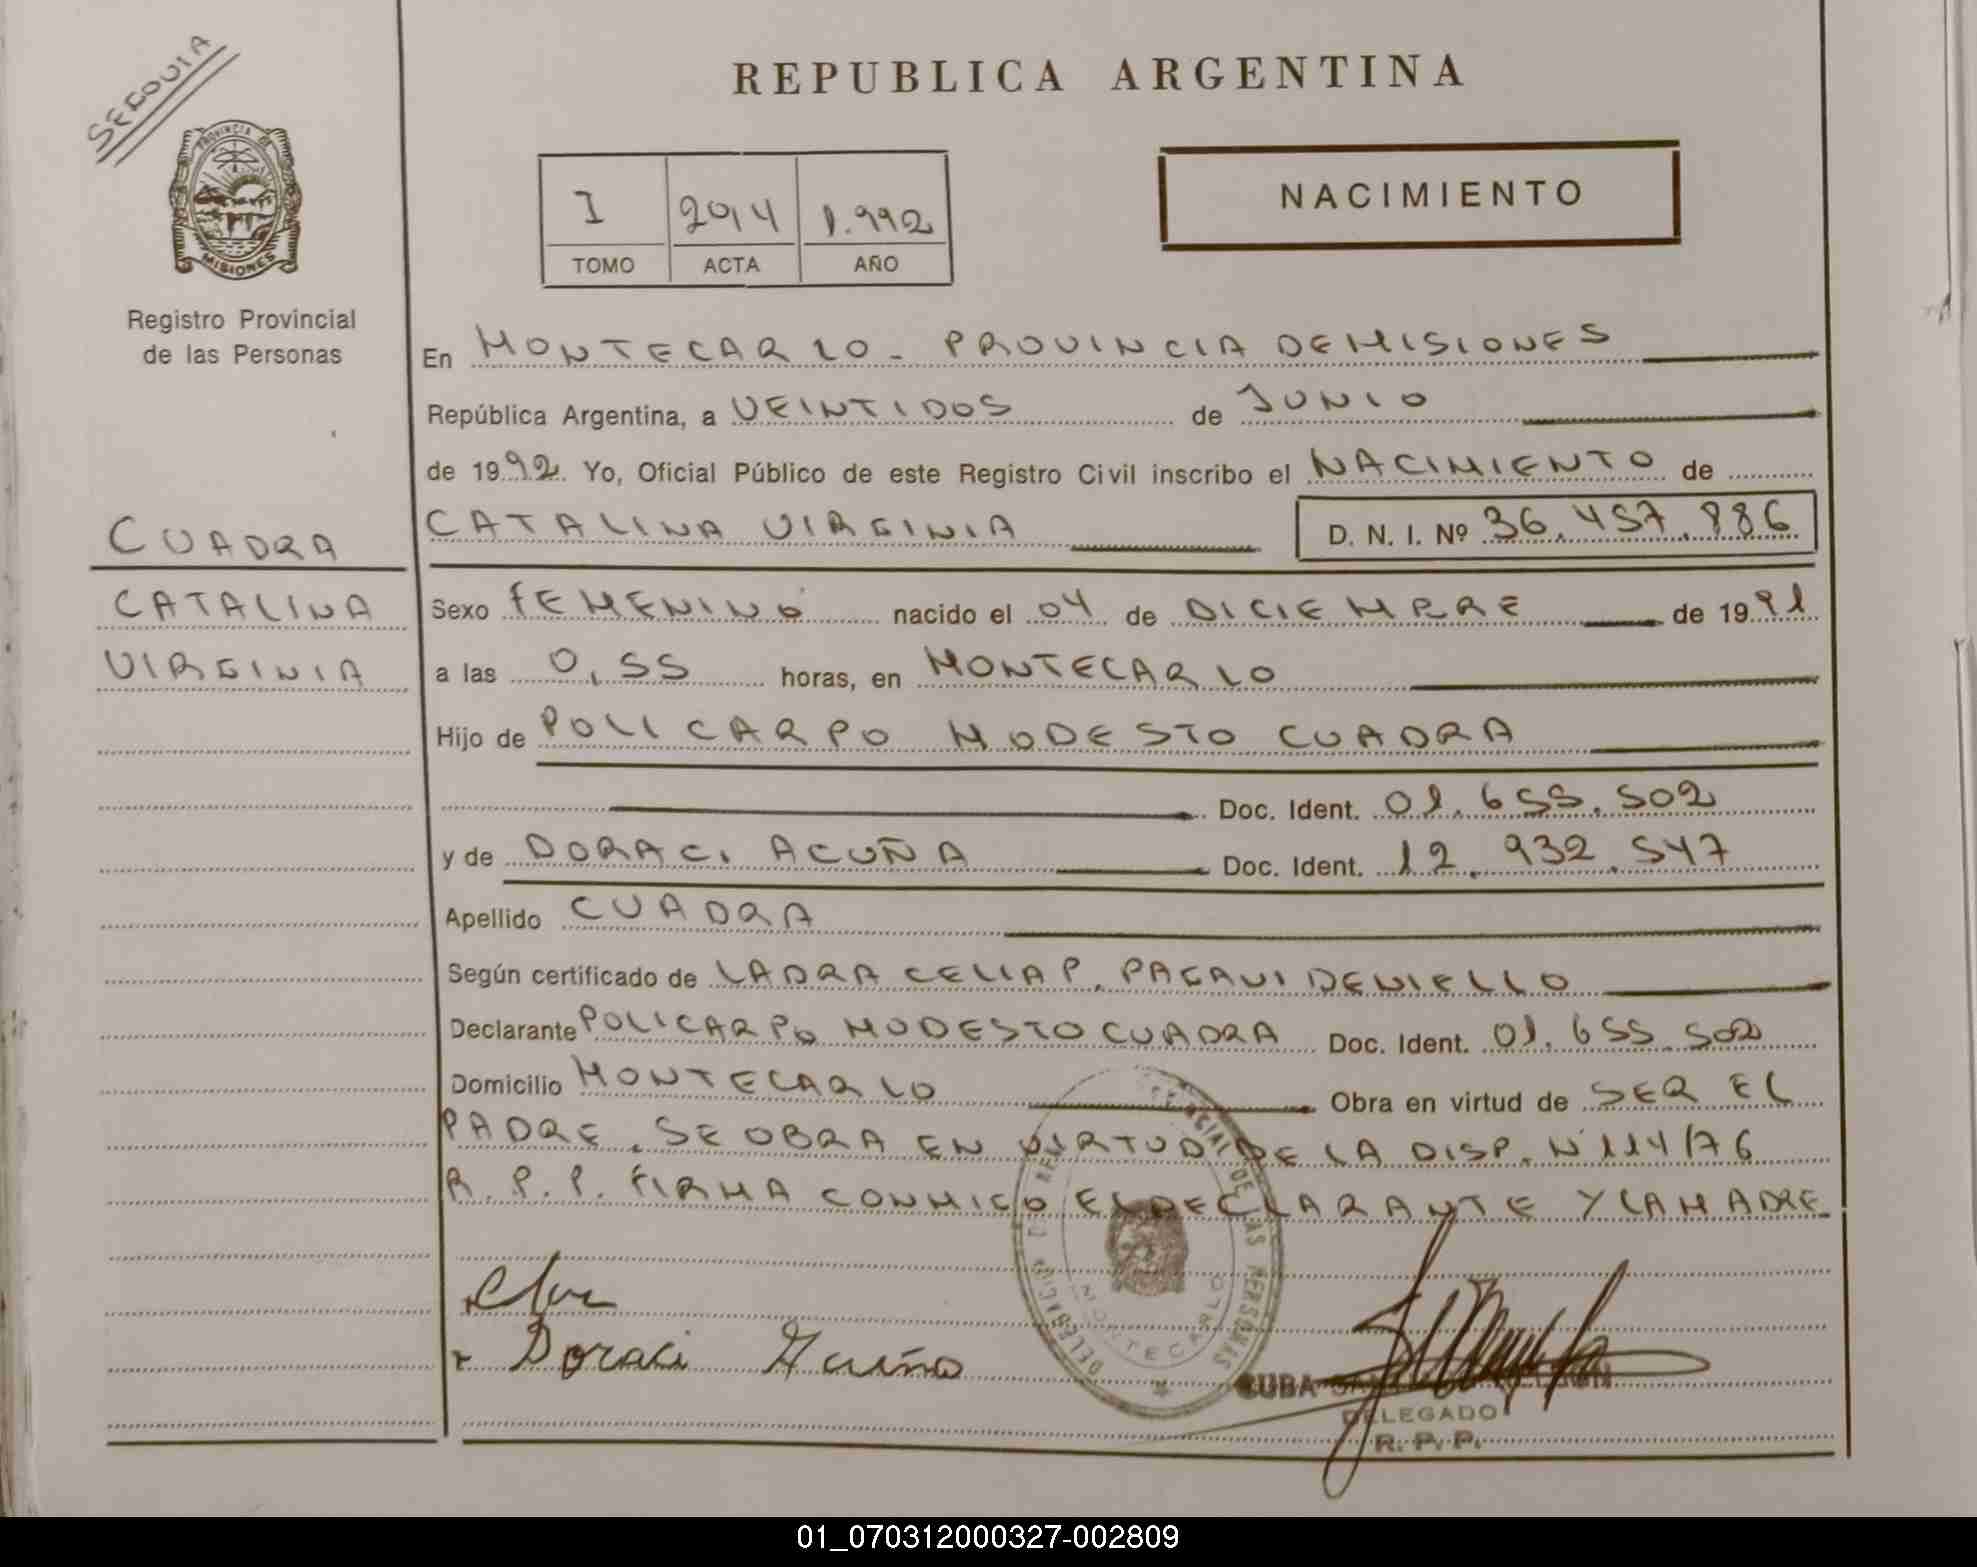 SEGOVIA
REPUBLICA ARGENTINA
PROVINCIA DE
MISIONES
Registro Provincial
de las Personas
I 2014 1.992
TOMO ACTA AÑO
NACIMIENTO
En MONTECARLO - PROVINCIA DE MISIONES
República Argentina, a VEINTIDOS de JUNIO
de 1992. Yo, Oficial Público de este Registro Civil inscribo el NACIMIENTO de
CATALINA VIRGINIA D. N. I. Nº 36.457.886
CUADRA
CATALINA
VIRGINIA
Sexo FEMENINO nacido el 04 de DICIEMBRE de 1991
a las 0,55 horas, en MONTECARLO
Hijo de POLICARPO MODESTO CUADRA
Doc. Ident. 01.655.502
y de DORACI ACUÑA Doc. Ident. 12.932.547
Apellido CUADRA
Según certificado de LADRA CELIA P.
Declarante POLICARPO MODESTO CUADRA Doc. Ident. 01.655.502
Domicilio MONTECARLO Obra en virtud de SER EL
PADRE. SE OBRA EN VIRTUD DE LA DISP. Nº 114/76
R. P. P. FIRMA CONMIGO EL DECLARANTE Y LA MADRE
Doraci Acuña
DE LAS PERSONAS
MONTECARLO
CUBA
DELEGADO
R. P. P.
01_070312000327-002809